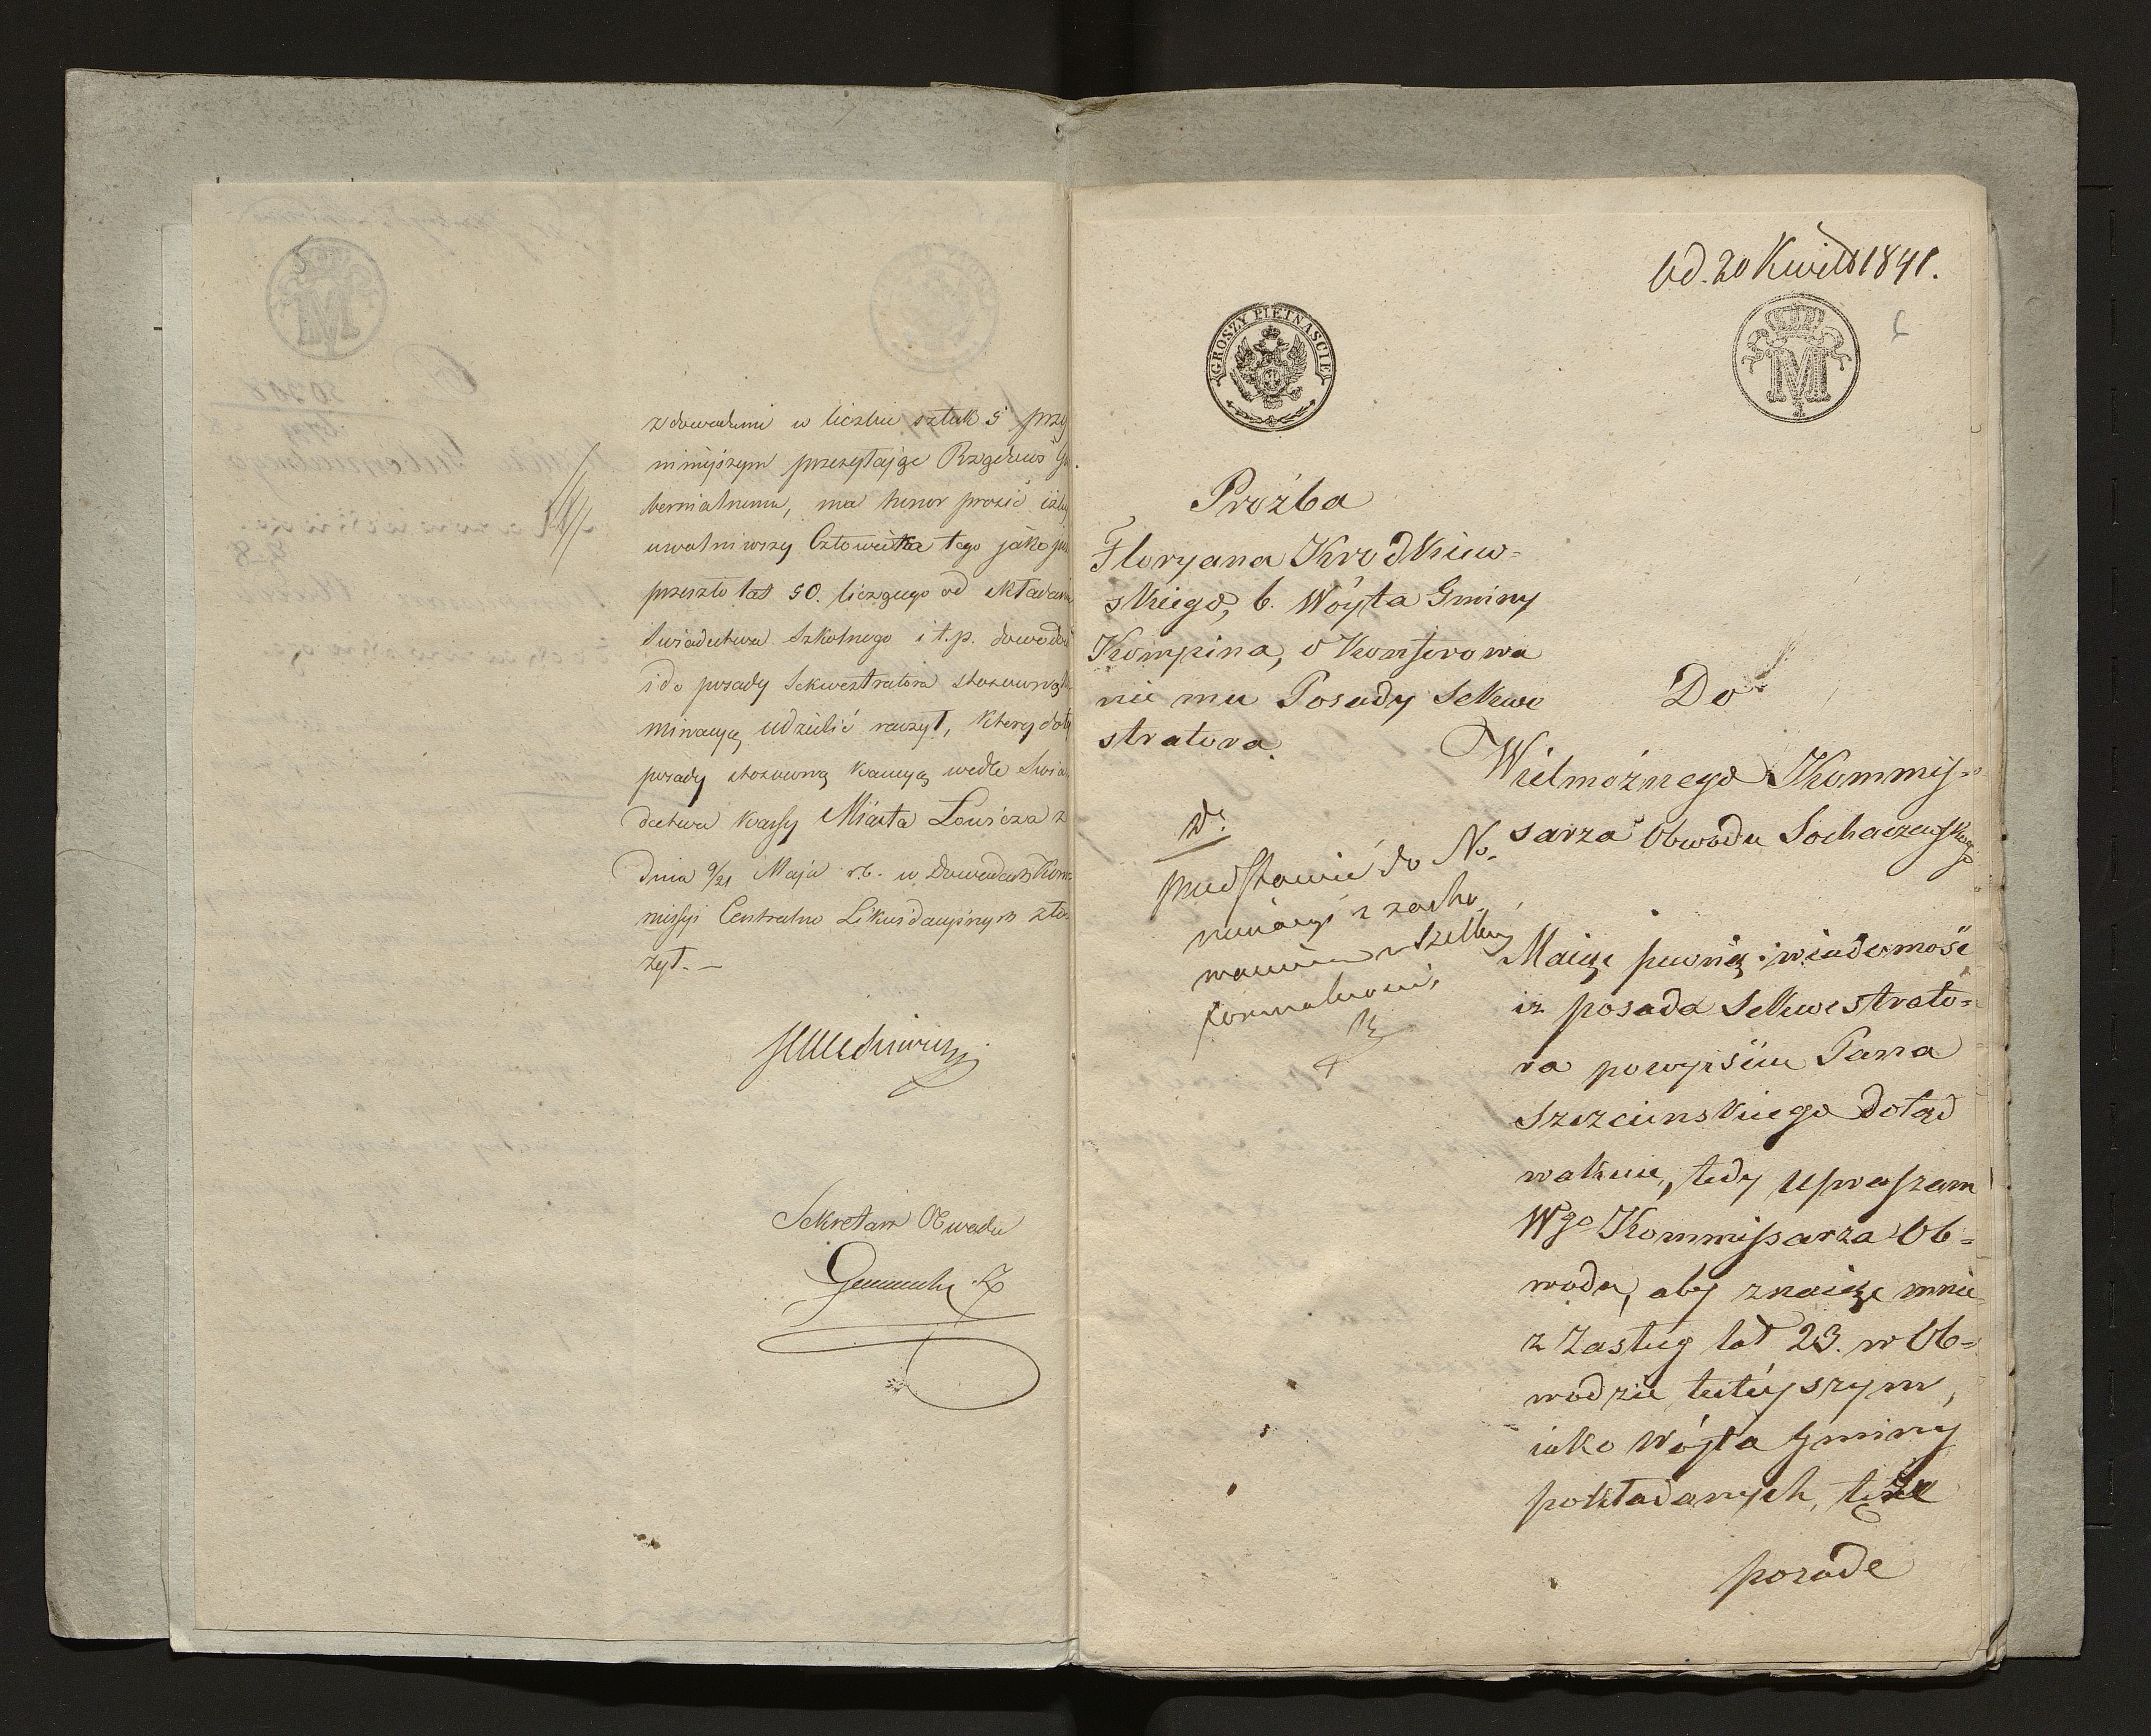 z dowodami w liczbie sztuk 5 przy
ninieyszym przesyłając Rządowi Gu
bernialnemu, ma honor prosić iżby
uwolniwszy Człowieka tego jako już
przeszło lat 50. liczącego od składania
Świadectwa Szkolnego i t.p. dowodów
i do posady Sekwestratora stosowną No
minacyą udzielić raczył, który do tey
posady stosowną kaucyą wedle Świa
dectwa kassy Miasta Łowicza z
dnia 9/21 Maja r.b. w Dowodach Kom
missyi Centralno Likwidacyinych zło
żył. —
Sekretarz Obwodu
Od. 20 Kwiet 1841.
GROSZY PIETNASCIE
M
I
Prośba
Floryana Krodkiew=
skiego, b. Wóyta Gminy
Kompina, o konferowa
nie mu Posady Sekwe
stratora.
Do
Wielmożnego Kommis=
sarza Obwodu Sochaczewskiego
przedstawić do No.
minacyi z zacho
waniem wszelkiey
formalności,
Maiąc pewną wiadomość
iż posada Sekwestrato=
ra po wyiściu Pana
Szczecinskiego dotąd
wakuie, tedy upraszam
Wgo Kommissarza Ob=
wodu, aby znaiąc mnie
z Zasług lat 23. w Ob=
wodzie tuteyszym,
iako Wóyta Gminy
pokładanych, téże
posade